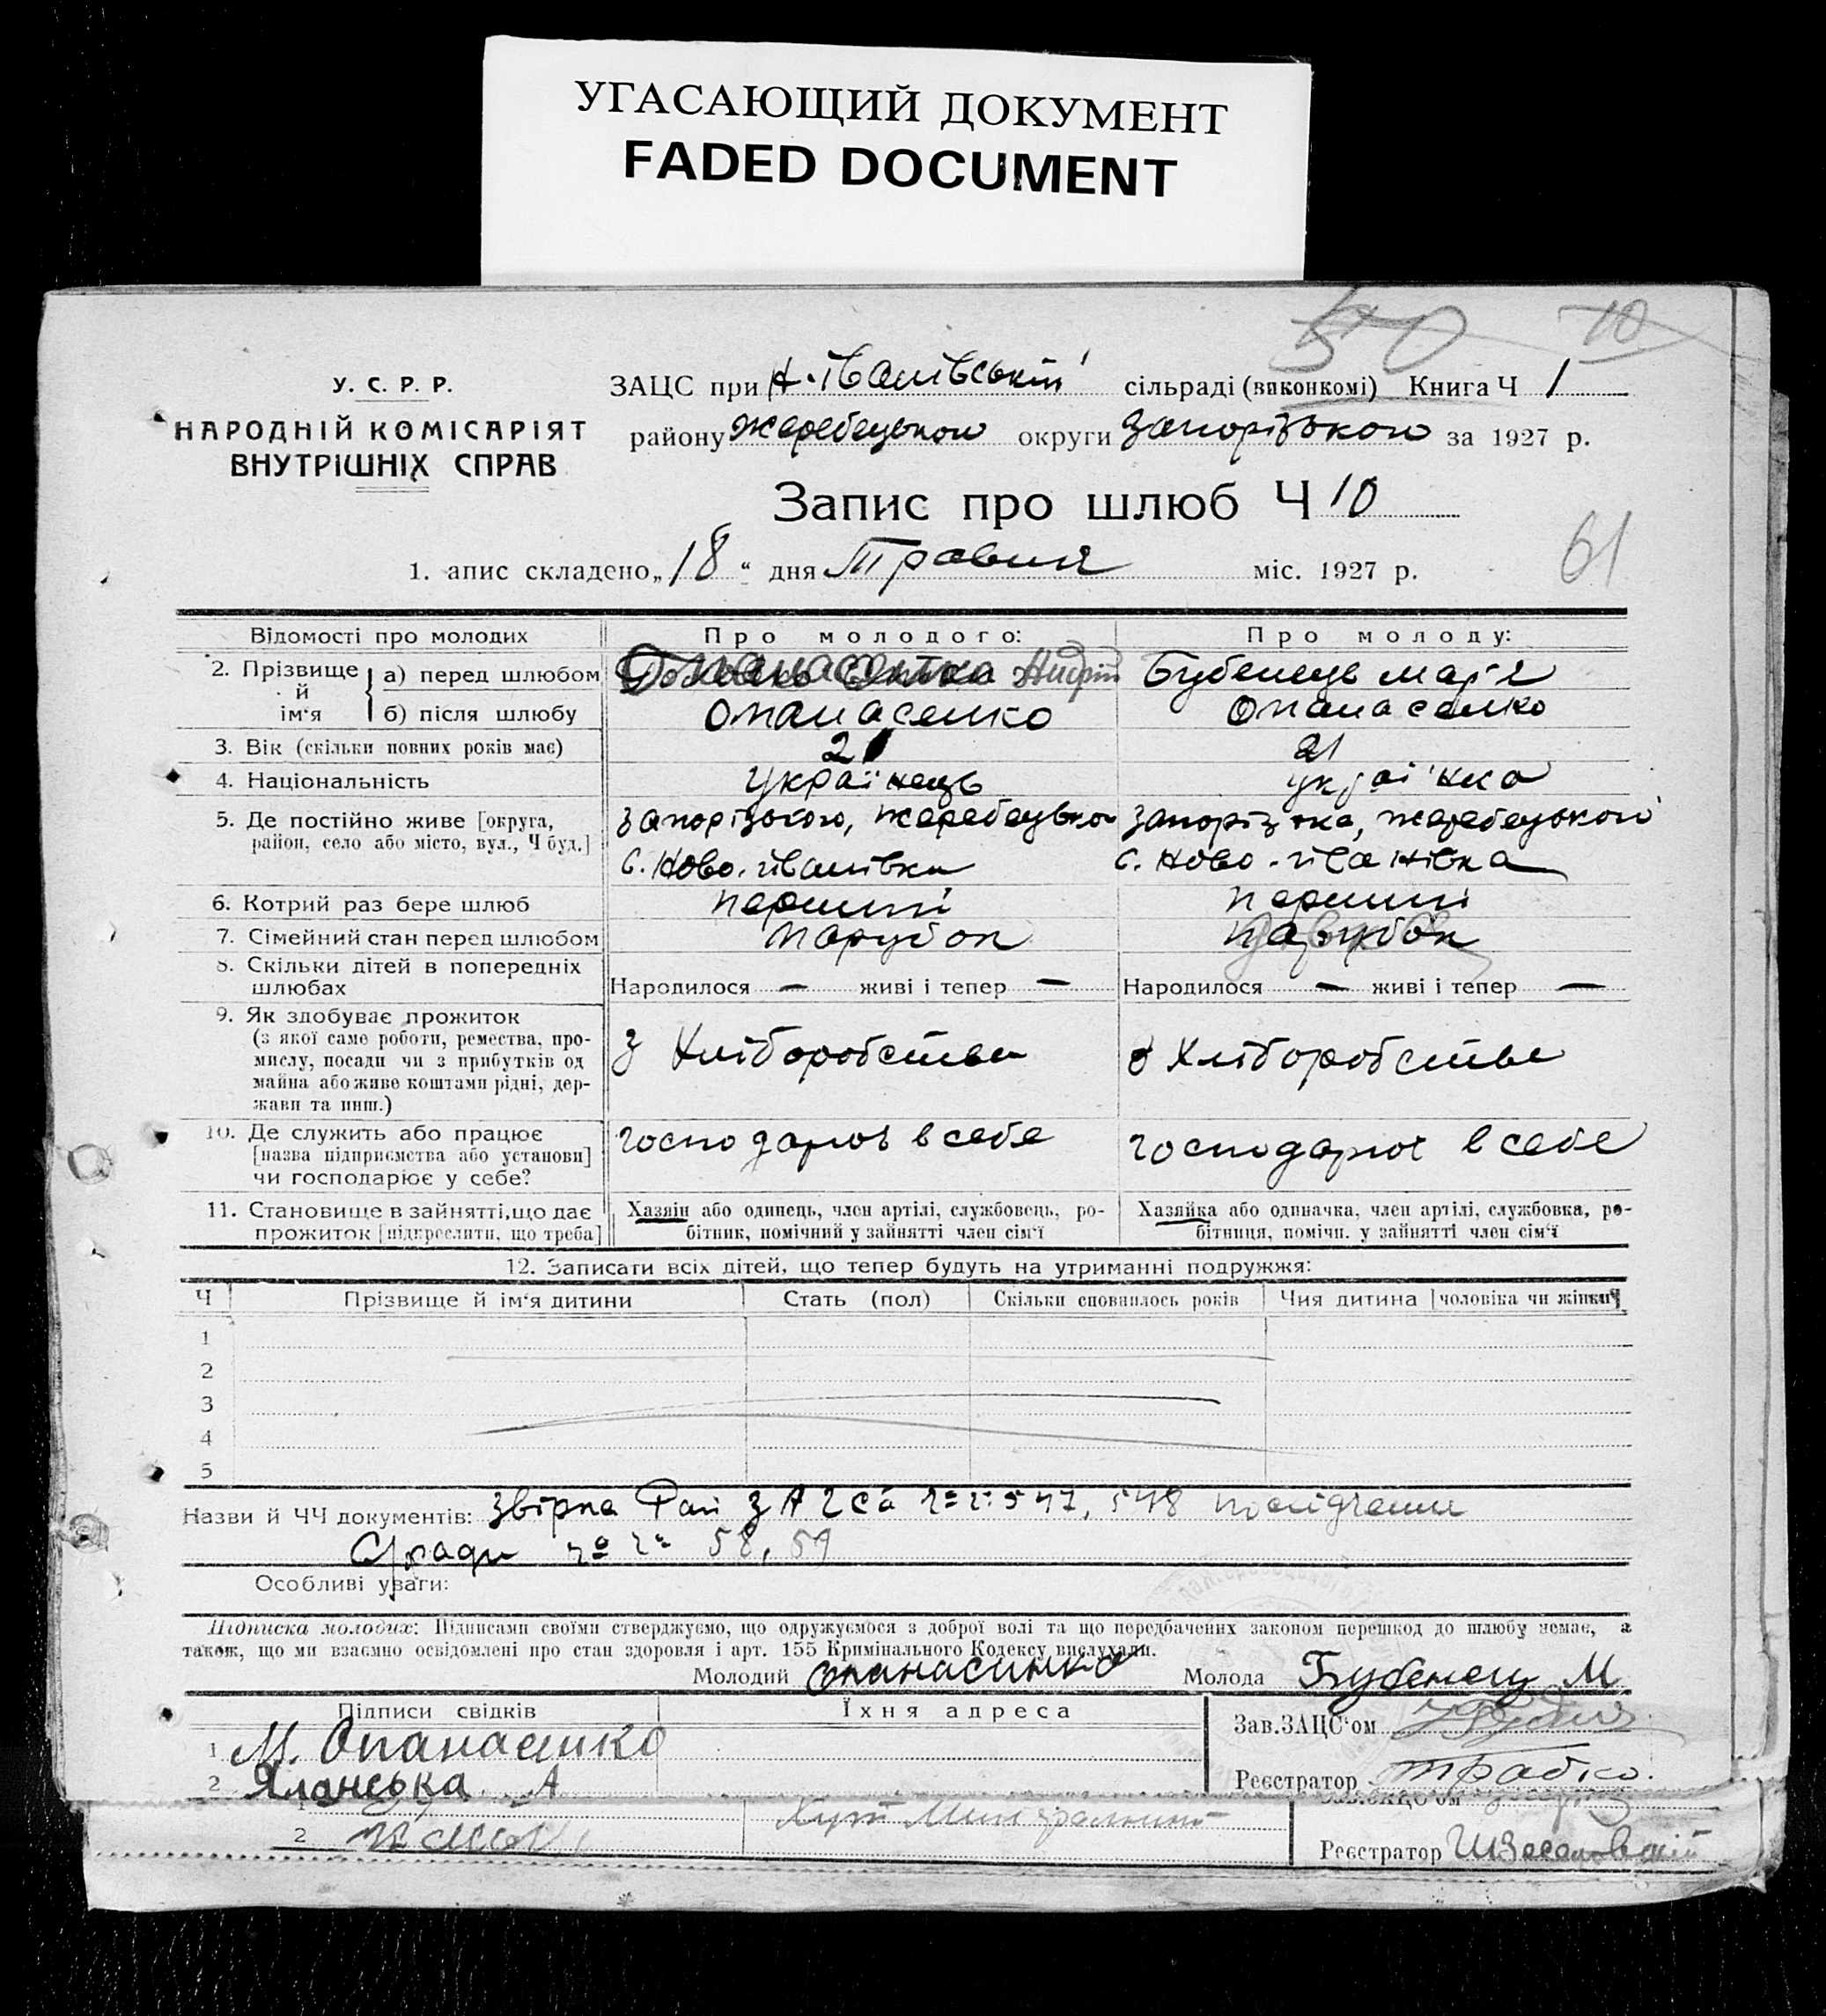 УГАСАЮЩИЙ ДОКУМЕНТ
FADED DOCUMENT
50 10
У. С. Р. Р.
НАРОДНІЙ КОМІСАРІЯТ
ВНУТРІШНІХ СПРАВ
ЗАЦС при Н-Іванівській сільраді (виконкомі) Книга Ч 1
району Жеребецького округи Запорізької за 1927 р.
Запис про шлюб Ч 10
61
1. апис складено „18“ дня Травня міс. 1927 р.
Відомості про молодих Про молодого: Про молоду:
2. Прізвище й ім‘я а) перед шлюбом Опанасенко Андрій Бубенець Марія
б) після шлюбу Опанасенко Опанасенко
3. Вік (скільки повних років має) 21 21
4. Національність Українець українка
5. Де постійно живе [округа, Запорізького, Жеребецького Запорізька, Жеребецького
район, село або місто, вул., Ч буд.] с. Ново-Іванівка с. Ново-Іванівка
6. Котрий раз бере шлюб перший перший
7. Сімейний стан перед шлюбом парубок
8. Скільки дітей в попередніх
шлюбах Народилося — живі і тепер — Народилося — живі і тепер —
9. Як здобуває прожиток
(з якої саме роботи, ремества, про-
мислу, посади чи з прибутків од З Хліборобства З Хліборобства
майна або живе коштами рідні, дер-
жави та инш.)
10. Де служить або працює господарює в себе господарює в себе
[назва підприємства або установи]
чи господарює у себе?
11. Становище в зайнятті, що дає Хазяїн або одинець, член артілі, службовець, ро- Хазяйка або одиначка, член артілі, службовка, ро-
прожиток [підкреслити, що треба] бітник, помічний у зайнятті член сім‘ї бітниця, помічн. у зайнятті член сім‘ї
12. Записати всіх дітей, що тепер будуть на утриманні подружжя:
Ч Прізвище й ім‘я дитини Стать (пол) Скільки сповнилось років Чия дитина [чоловіка чи жінки]
1
2
3
4
5
Назви й ЧЧ документів: Звірка Рай ЗАГСа 547, 548 посвідчення
С/ради 58, 59
Особливі уваги:
Підписка молодих: Підписами своїми стверджуємо, що одружуємося з доброї волі та що передбачених законом перешкод до шлюбу немає, а
також, що ми взаємно освідомлені про стан здоровля і арт. 155 Кримінального Кодексу вислухали.
Молодий Опанасинко Молода Бубенец М.
Підписи свідків Їхня адреса
Зав.ЗАЦС‘ом
1 М. Опанасенко
2 Яланська А Реєстратор Трабко.
2 Реєстратор